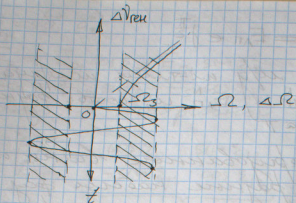 Δν ген
Ω₃
0
Ω, ΔΩ
t